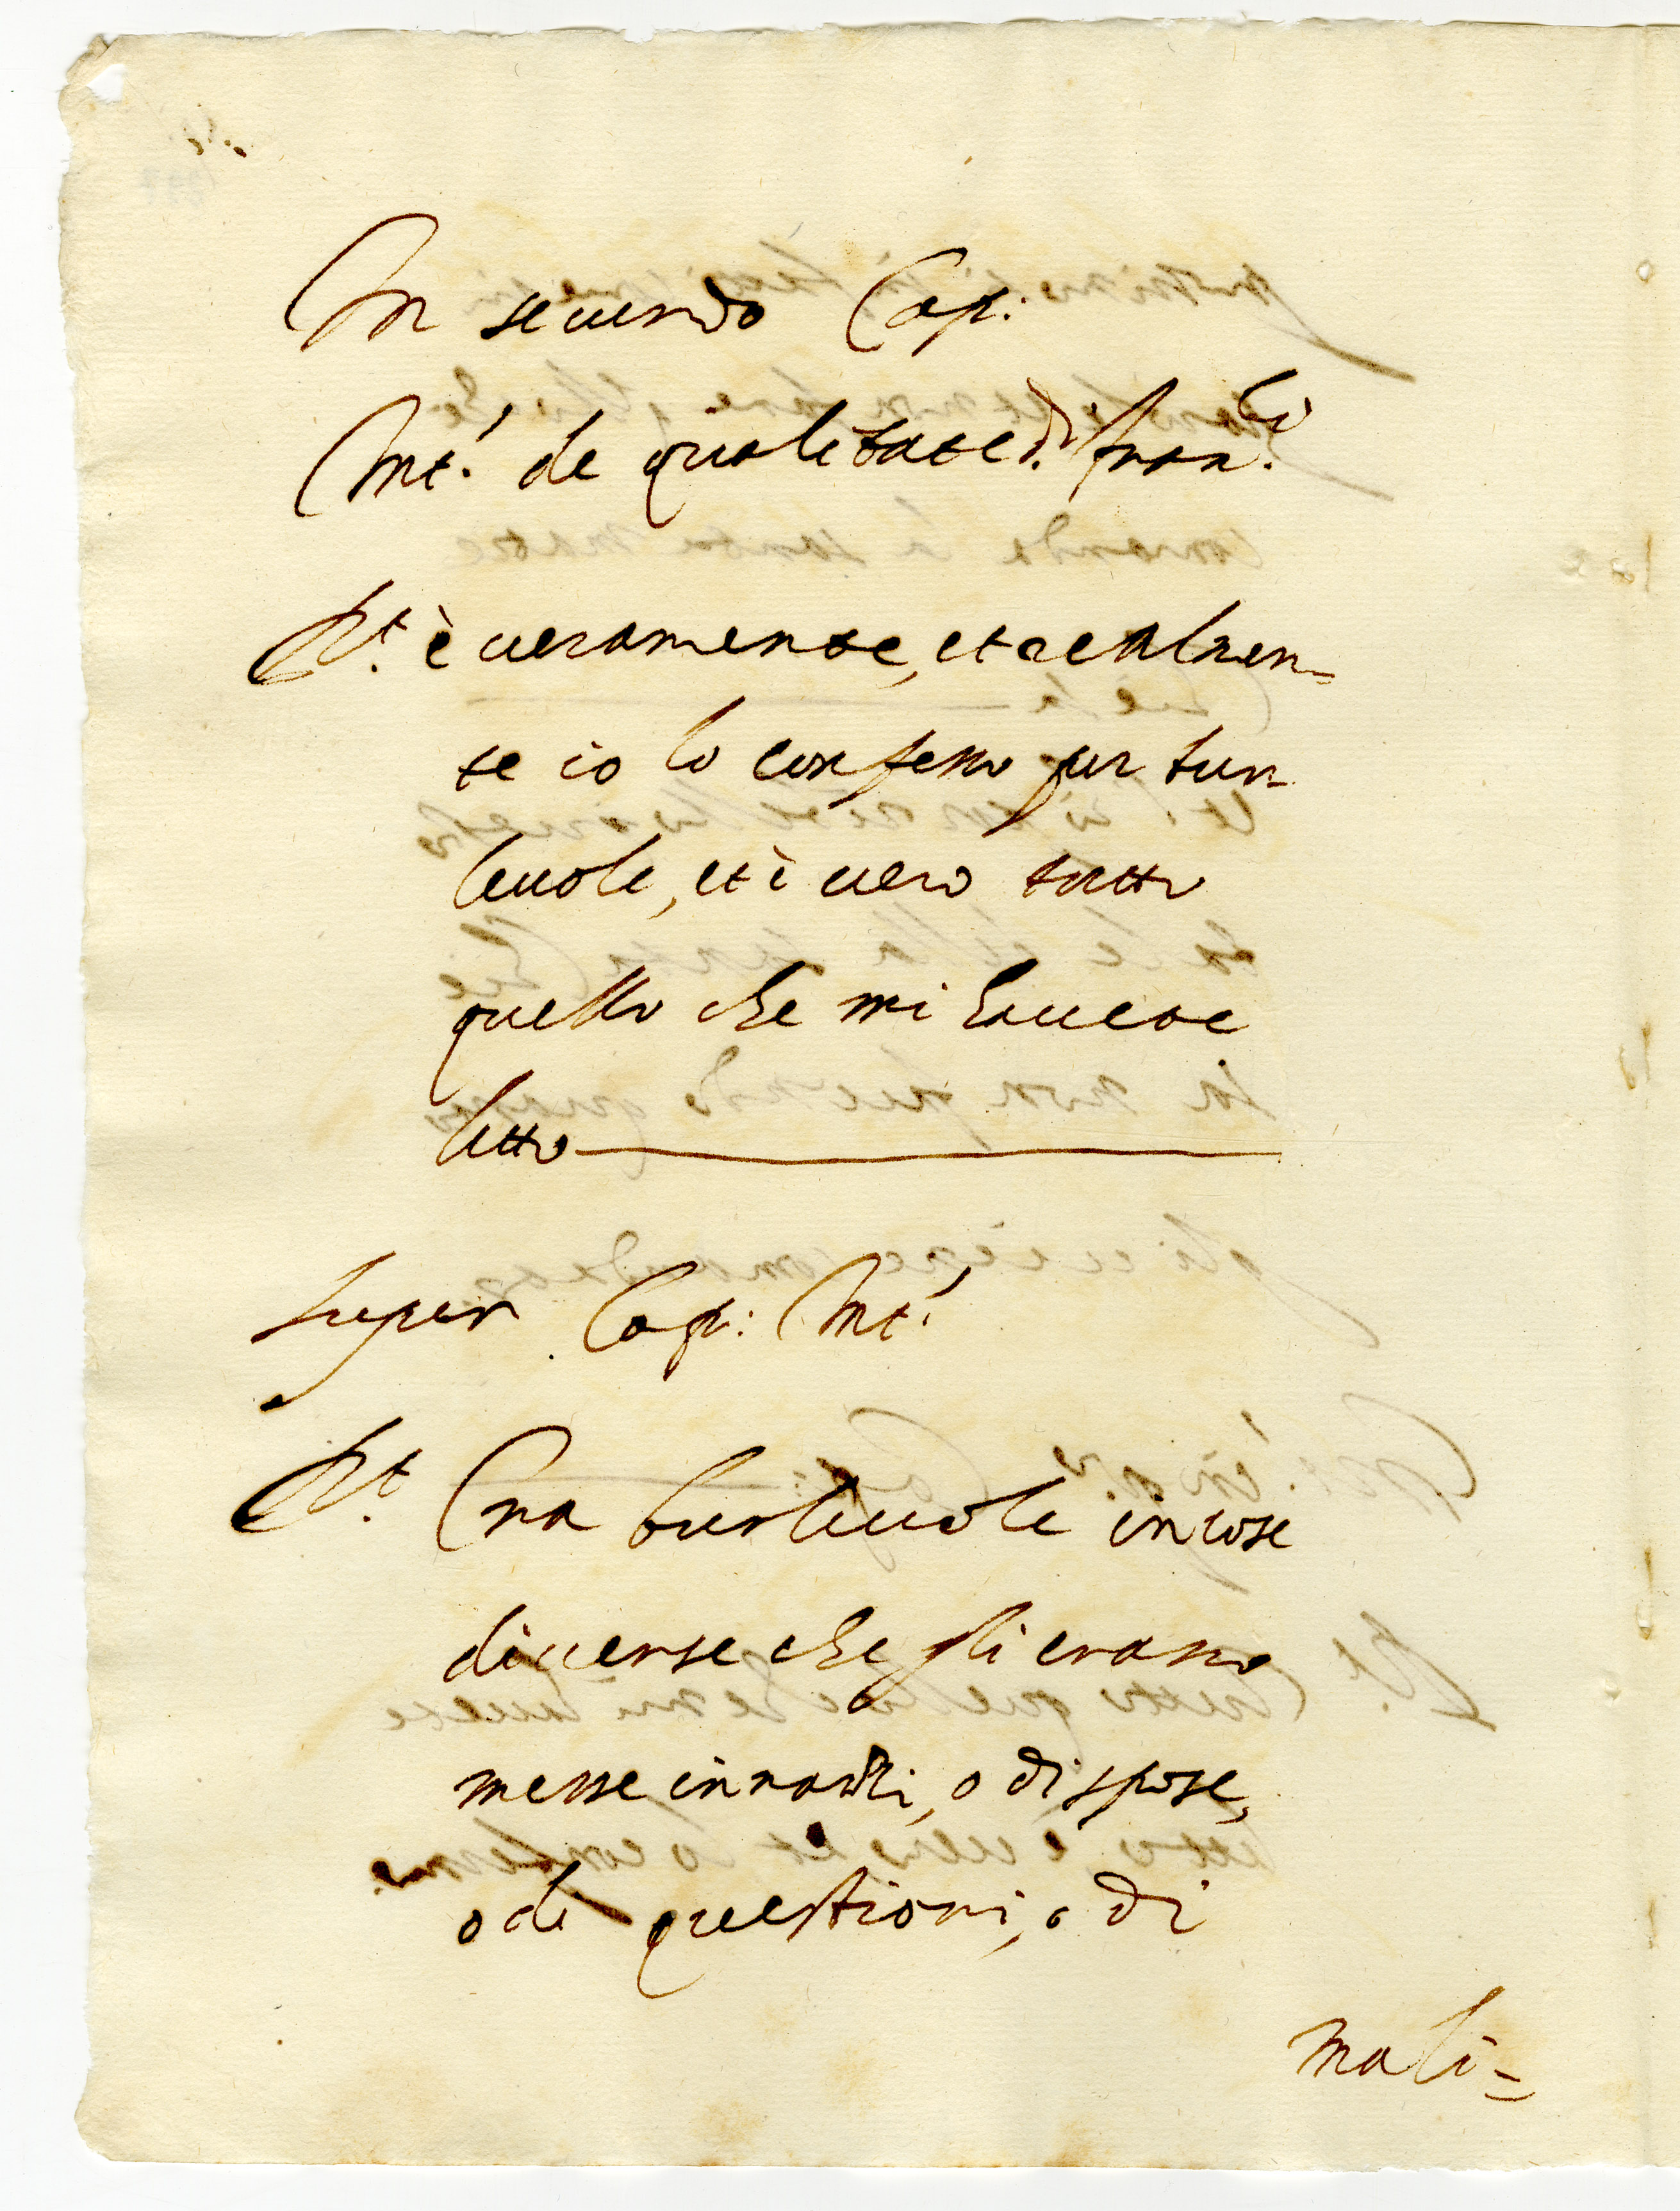 In secundo Cap:
Int.' de qualitate d.i fran.ci
R.t è ueramente, et realmen=
te io lo confesso per bur-
leuole, et è uero tutto
quello che mi hauete
letto
Super Cap: Int.'
R.t Era burleuole in cose
diuerse che gli erano
messe innanzi, o di spose,
o di questioni, o di
mali=